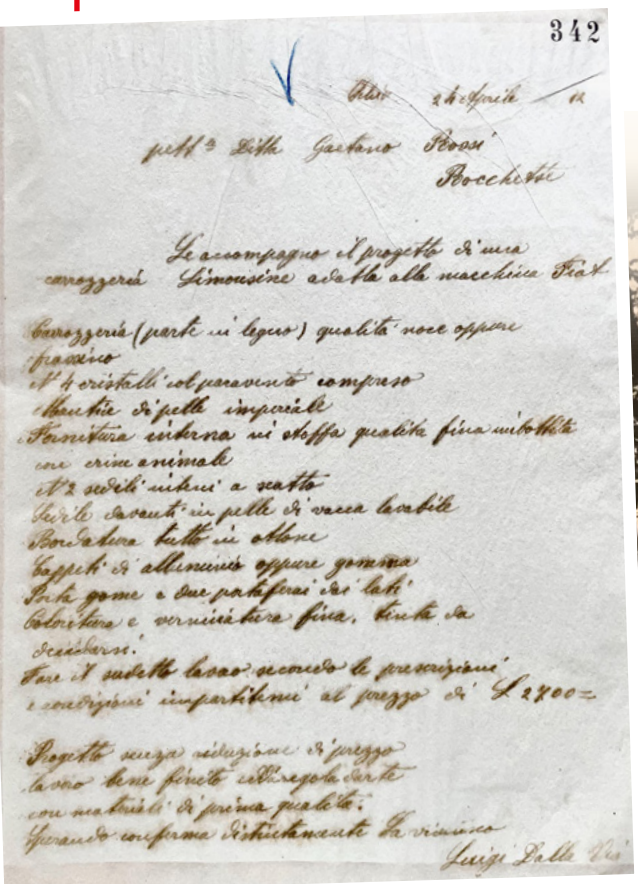 342
24 Aprile 12
Ditta Gaetano Rossi
Rocchette
Le accompagno il progetto di una
carrozzeria Limousine adatta alla macchina Fiat
Carrozzeria (parte in legno) qualità noce oppure
frassino
N° 4 cristalli col paravento compreso
Mantice di pelle imperiale
Fornitura interna in stoffa qualità fina imbottita
con crine animale
N° 2 sedili interni a scatto
Sedile davanti in pelle di vacca lavabile
Bordatura tutto in ottone
Tappeti di alluminio oppure gomma
Porta gome e due portaferai dei lati
Coloritura e verniciatura fina, tinta da
decidersi.
Fare il sudetto lavoro secondo le prescrizioni
e condizioni impartitemi al prezzo di £ 2700=
Progetto senza riduzione di prezzo
lavoro bene finito ed a regola d'arte
con materiali di prima qualità.
Sperando conferma distintamente La riverisco
Luigi Dalla Via